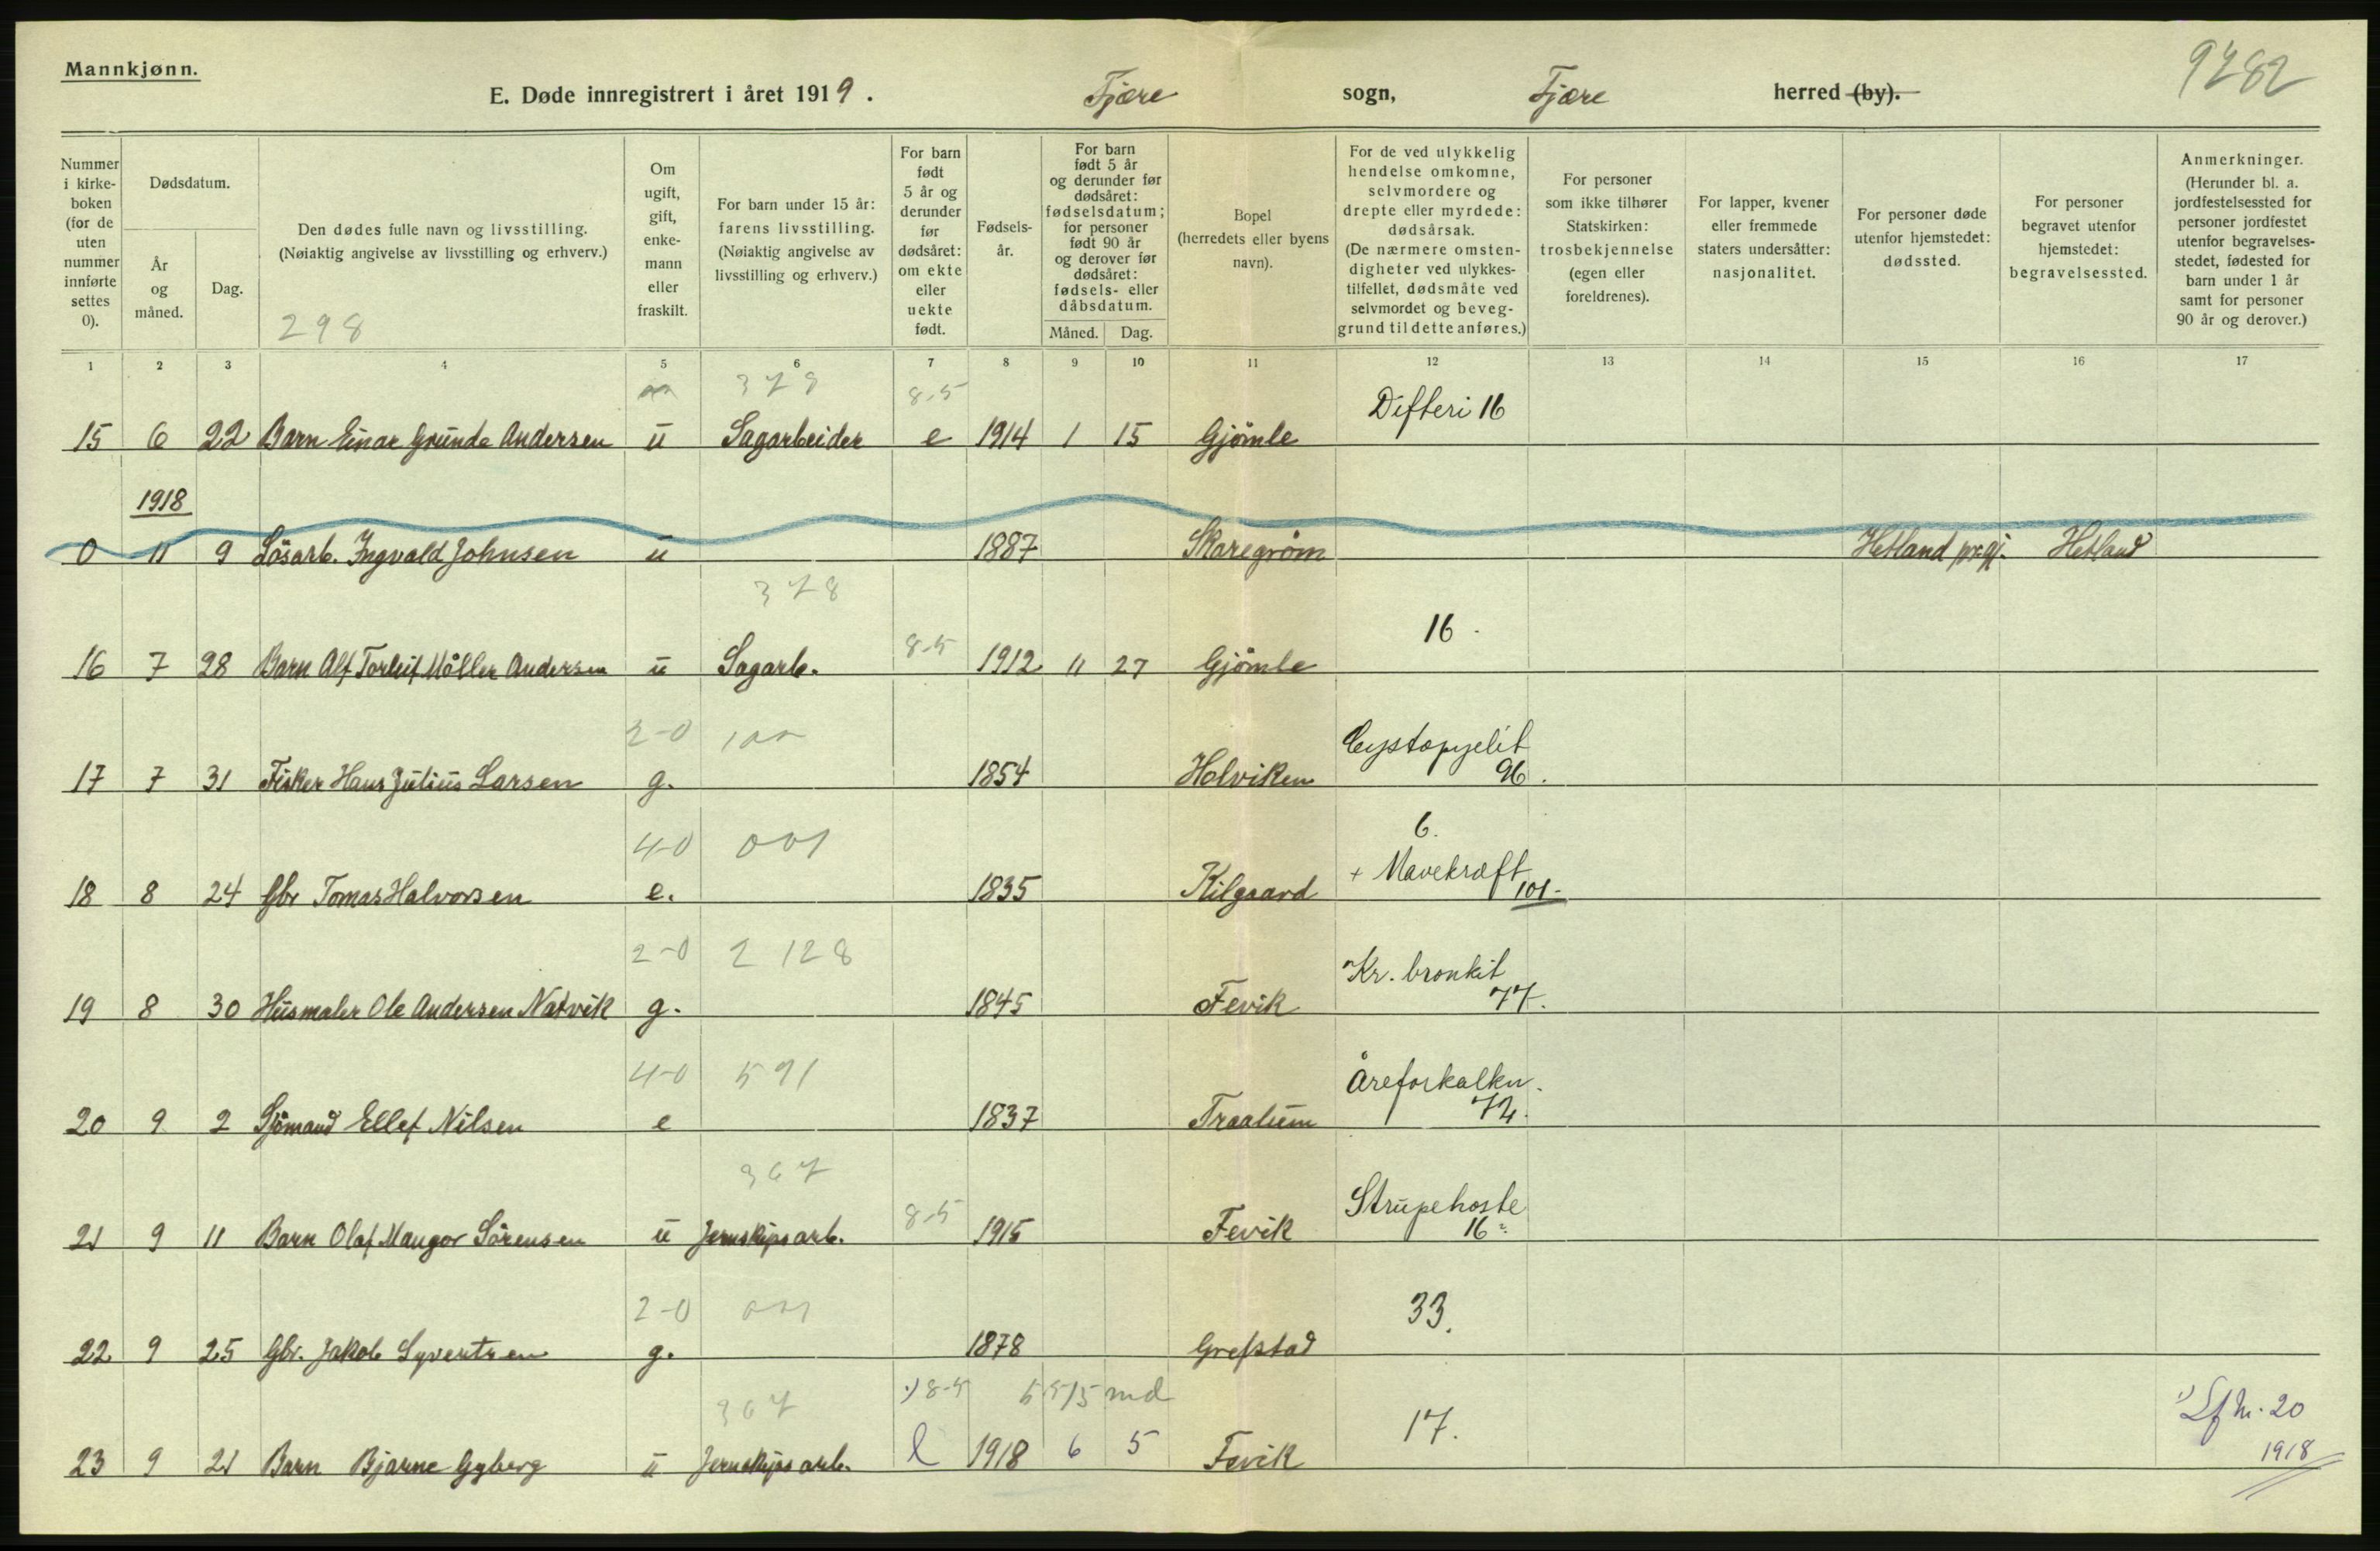 Mannkjønn.
9782
E. Døde innregistrert i året 1919. Fjære sogn, Fjære herred (by).
Nummer i kirke-boken (for de uten nummer innførte settes 0).
Dødsdatum.
År og måned.
Dag.
Den dødes fulle navn og livsstilling.
(Nøiaktig angivelse av livsstilling og erhverv.)
298
Om ugift, gift, enke-mann eller fraskilt.
For barn under 15 år: farens livsstilling.
(Nøiaktig angivelse av livsstilling og erhverv.)
For barn født 5 år og derunder før dødsåret: om ekte eller uekte født.
Fødsels-år.
For barn født 5 år og derunder før dødsåret: fødselsdatum; for personer født 90 år og derover før dødsåret: fødsels- eller dåbsdatum.
Måned. Dag.
Bopel
(herredets eller byens navn).
For de ved ulykkelig hendelse omkomne, selvmordere og drepte eller myrdede: dødsårsak.
(De nærmere omsten-digheter ved ulykkes-tilfellet, dødsmåte ved selvmordet og beveg-grund til dette anføres.)
For personer som ikke tilhører Statskirken: trosbekjennelse (egen eller foreldrenes).
For lapper, kvener eller fremmede staters undersåtter: nasjonalitet.
For personer døde utenfor hjemstedet: dødssted.
For personer begravet utenfor hjemstedet: begravelsessted.
Anmerkninger.
(Herunder bl. a. jordfestelsessted for personer jordfestet utenfor begravelses-stedet, fødested for barn under 1 år samt for personer 90 år og derover.)
1 2 3 4 5 6 7 8 9 10 11 12 13 14 15 16 17
379 8-5 Difteri 16
15 6 22 Barn Einar Grunde Andersen u Sagarbeider e 1914 1 15 Gjømle
1918
0 11 9 Løsarb. Ingvald Johnsen u 1887 Skaregrøm Hetland pr.gj. Hetland
378
8-5 16.
16 7 28 Barn Alf Torleif Møller Andersen u Sagarb. 1912 11 27 Gjømle
2-0 Cystopyelit
96.
17 7 31 Fisker Hans Julius Larsen g. 1854 Holviken
4-0 001 6.
+ Mavekræft
101-
18 8 24 Gbr Tomas Halvorsen e. 1835 Kilgaard
2-0 2 128 Kr. bronkit
77.
19 8 30 Husmaler Ole Andersen Natvik g. 1845 Fevik
4-0 591 Åreforkalkn.
72.
20 9 2 Sjømand Ellef Nilsen e 1837 Traalum
367
8-5 Strupehoste
16
21 9 11 Barn Olaf Mangor Sørensen u Jernskipsarb. 1915 Fevik
2-0 001 33.
22 9 25 Gbr. Jakob Syvertsen g. 1878 Grefstad
367 8-5 15 md 17. Lf nr. 20
1918
23 9 21 Barn Bjarne Gyberg u Jernskipsarb. l 1918 6 5 Fevik